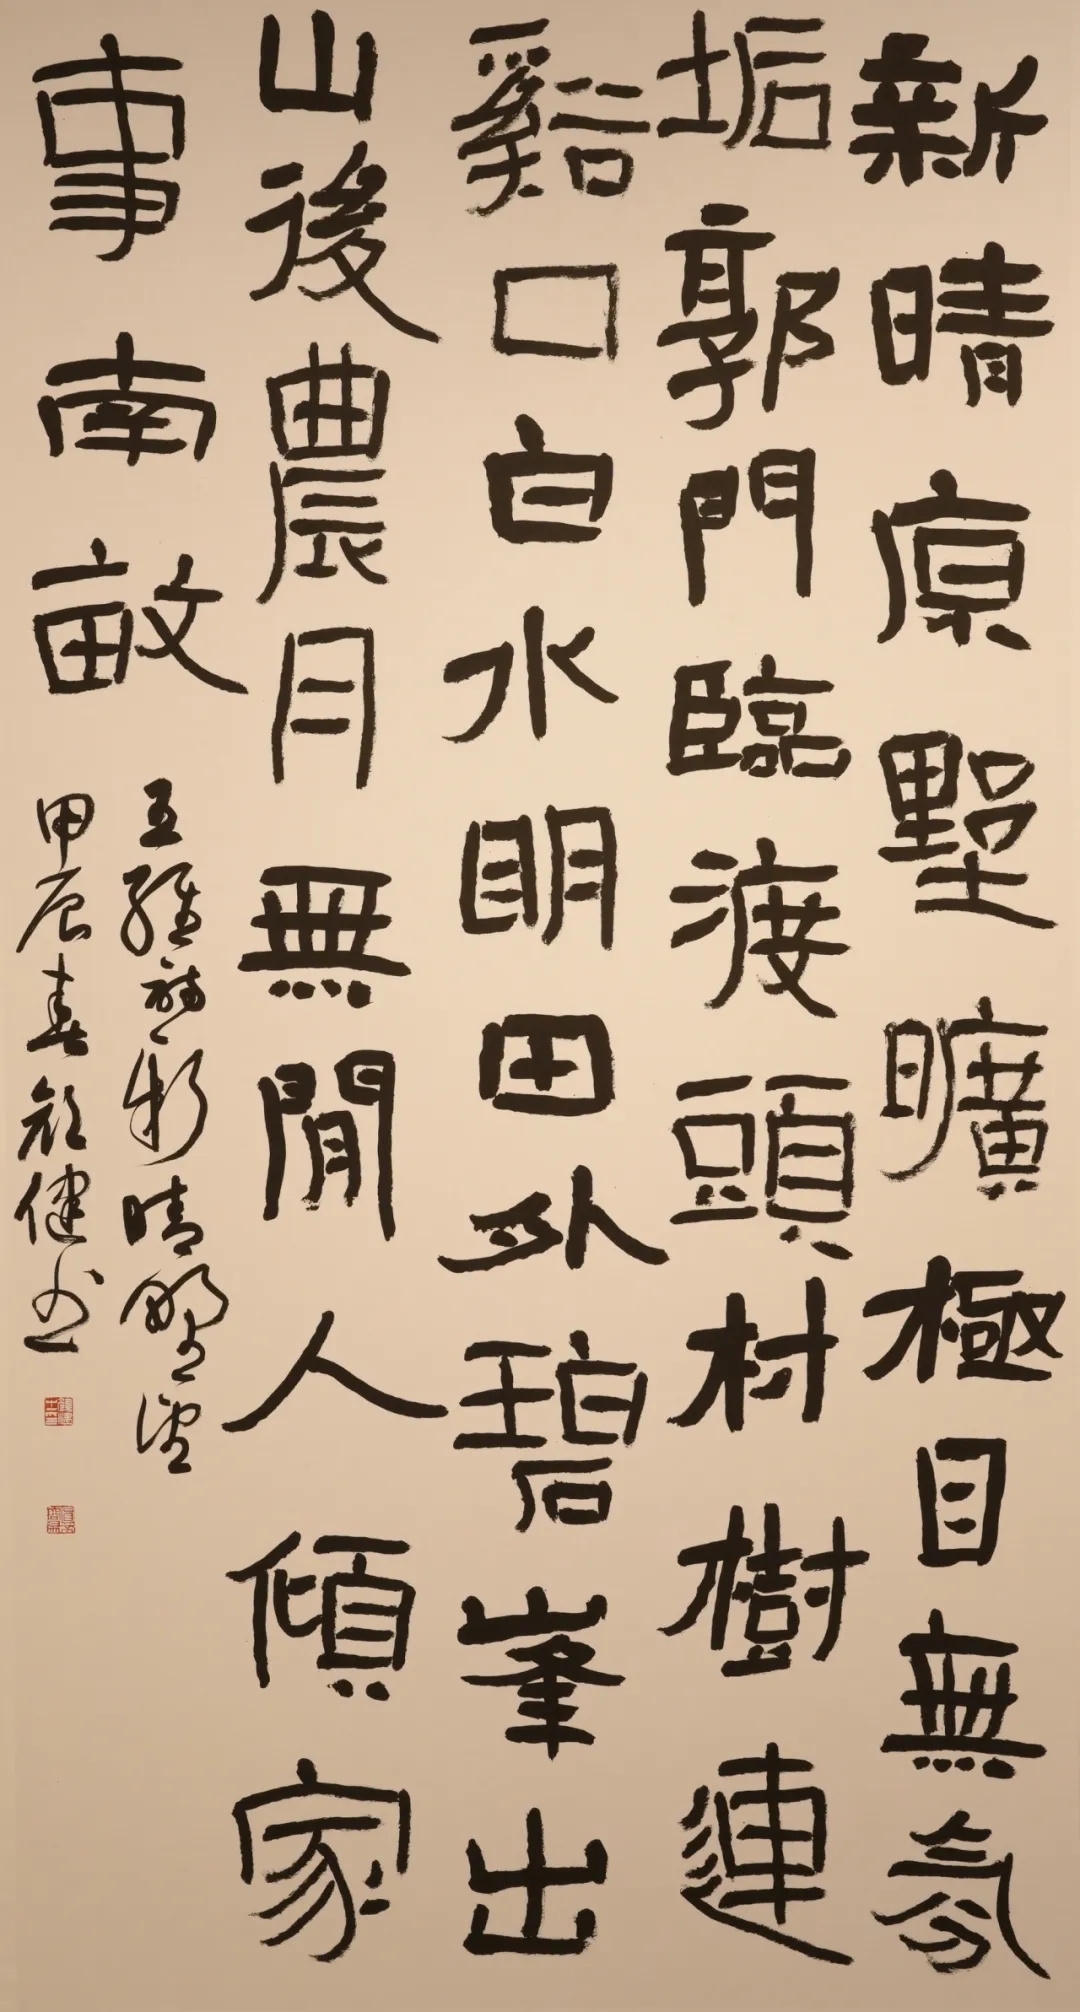 新晴原墅曠極目無氛
垢郭門臨渡頭村樹連
谿口白水眀田外碧峯出
山後農月無閒人傾家
事南畝
王維詩新晴墅望
甲辰春健书